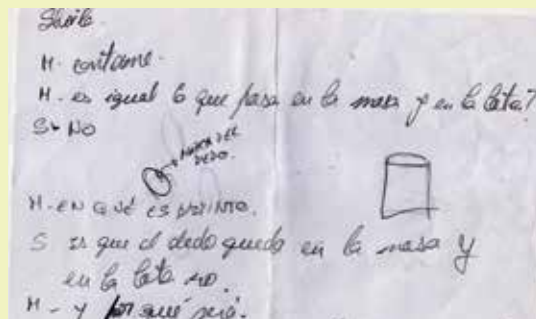 Sheila.
M- contame.
M- es igual lo que pasa en la masa y en la lata?
S- NO
MARCA DEL
DEDO.
M- EN QUÉ ES DISTINTO.
S es que el dedo quedo en la masa y
en la lata no.
M- y por qué será.